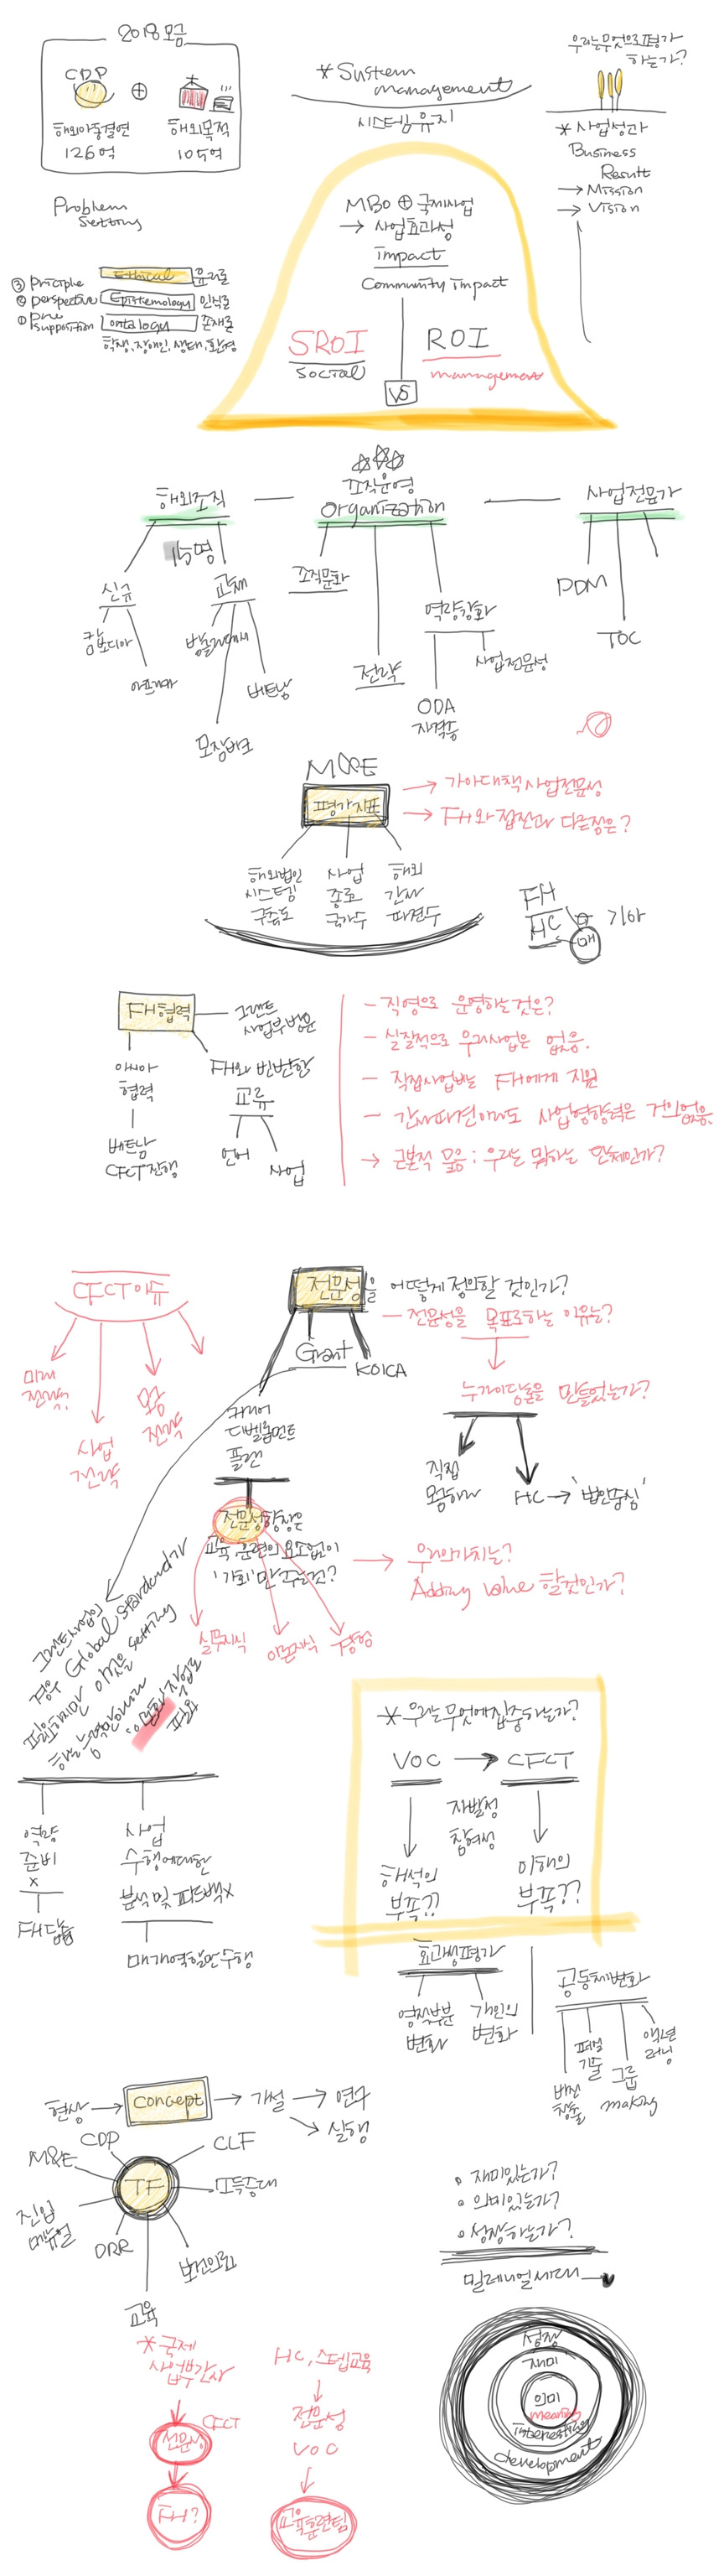 2018 모금
CDP
해외아동결연
126억
해외목적
105억
* System
management
시스템 유지
우리는 무엇으로 평가
하는가?
* 사업성과
Business
Result
→ Mission
→ Vision
Problem
Setting
③ principle
Ethical
윤리론
② perspective
Epistemology
인식론
① pre
supposition
ontology
존재론
학생, 장애인, 생태, 환경
MBO ⊕ 국제사업
→ 사업효과성
impact
Community impact
SROI
Social
ROI
management
VS
해외조직
15명
신규
캄보디아
교체
방글라데시
모잠비크
베트남
조직운영
Organization
조직문화
전략
역량강화
ODA
자격증
사업전문성
사업전문가
PDM
TOC
MORE
평가지표
→ 기아대책 사업전문성
→ FH와 접전과 다른점은?
해외법인
시스템
구축도
사업
종료
국가수
해외
간사
파견수
FH
HC
기아
FH협력
그랜트
사업부방문
아시아
협력
베트남
CFCT진행
FH와 빈번한
교류
언어
사업
- 직영으로 운영하는 것은?
- 실질적으로 우리사업은 없음.
- 직접사업비는 FH에게 지원
- 간사파견이외도 사업영향력은 거의없음.
→ 근본적 물음 : 우리는 뭐하는 단체인가?
CFCT이듀
미래
전략
사업
전략
전략
전문성을 어떻게 정의할 것인가?
- 전문성을 목표로하는 이유는?
Grant
KOICA
누가이담론을 만들었는가?
직접
HC → '법인중심'
커리어
디벨롭먼트
플랜
전문성향상은
교육 훈련의 요소없이
'기회'만 주는건?
→ 우리의가치는?
Adding value 할것인가?
실무지식
이론지식
경험
그랜트사업의
경우 Global standard가
필요하지만 이것을 setting
하는 노력만이라
필요
역량
준비
x
FH담당
사업
수행에대한
분석 및 피드백x
매개역할만 수행
* 우리는 무엇에 집중하는가?
VOC → CFCT
자발성
참여성
해석의
부족??
이해의
부족??
효과성평가
영적부분
변화
개인의
변화
공동체변화
비전
창출
퍼실
기술
그룹
making
액션
러닝
현상 → concept → 개설 → 연구
→ 실행
TF
CDP
CLF
M&E
소득증대
진입
메뉴얼
DRR
보건의료
교육
◦ 재미있는가?
◦ 의미있는가?
◦ 성장하는가?
밀레니얼세대
성장
재미
의미
meaning
interesting
development
* 국제
사업부간사
CFCT
전문성
FH?
HC, 스텝교육
전문성
VOC
교육훈련팀